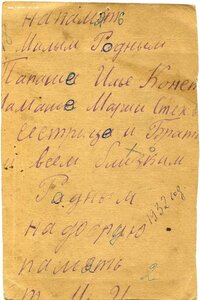 на память
Милым Родным
Папаше Илье Конст
Мамаше Марии Степ
сестрице и брат
и всем близким
Родным
на добрую 1932 год
память